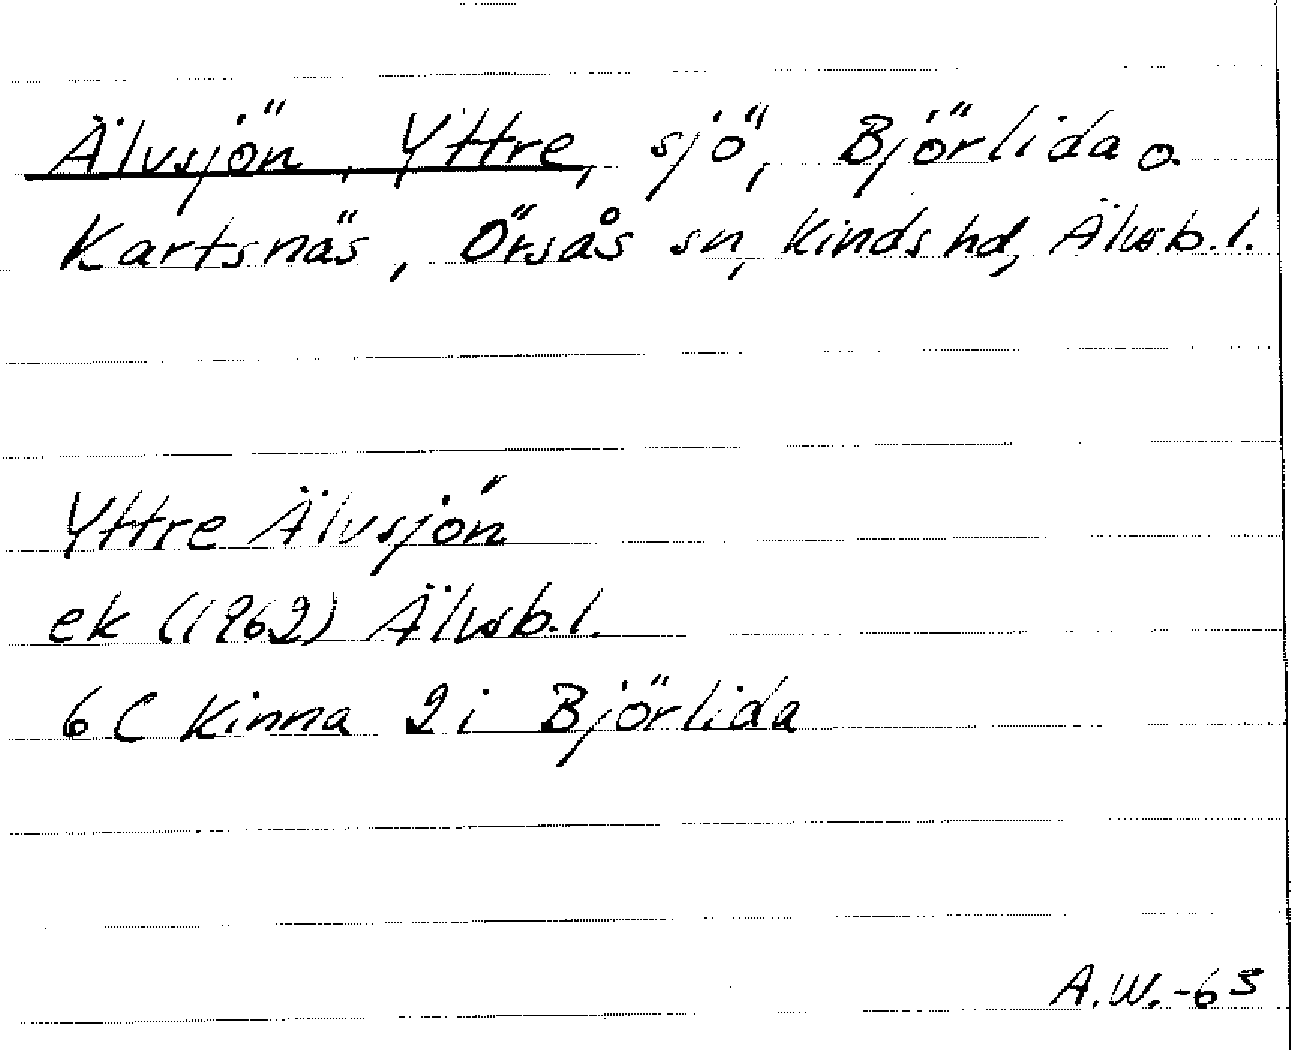 Älvsjön, Yttre, sjö, Björlida o.
Kartsnäs, Örsås sn, Kinds hd, Älvsb.l.
Yttre Älvsjön
ek (1962) Älvsb.l.
6 C Kinna 2 i Björlida
A.W.-63